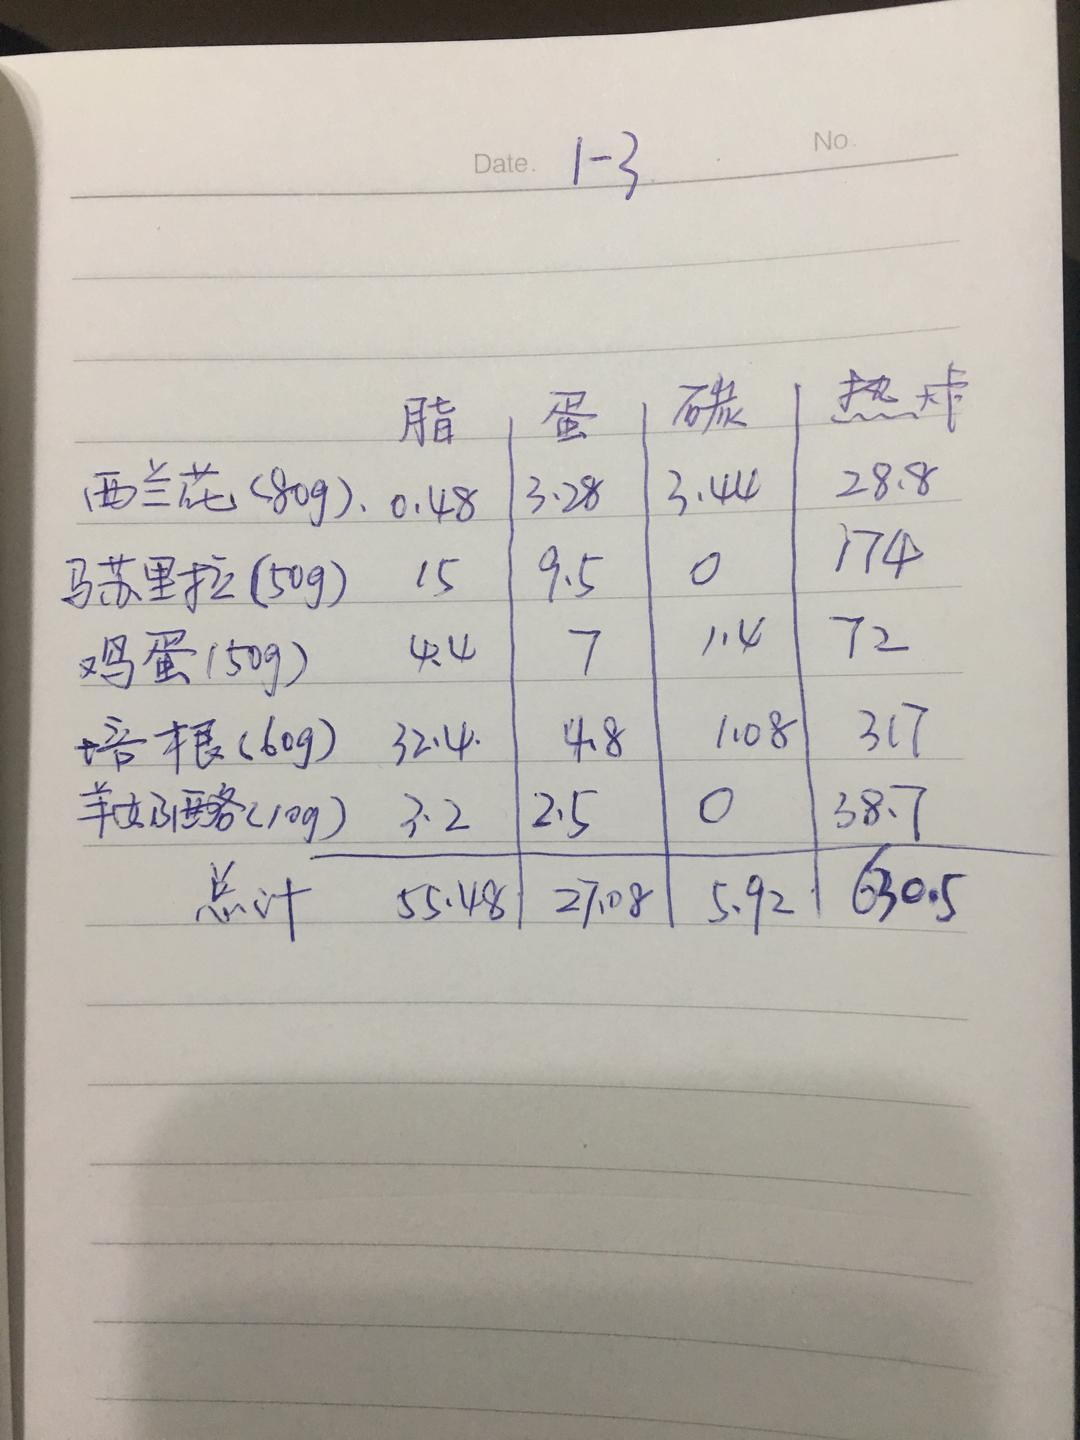 Date. 1-3 No.
脂 蛋 碳 热卡
西兰花(80g). 0.48 3.28 3.44 28.8
马苏里拉(50g) 15 9.5 0 174
鸡蛋(50g) 4.4 7 1.4 72
培根(60g) 32.4. 4.8 1.08 317
羊奶酪(10g) 3.2 2.5 0 38.7
总计 55.48 27.08 5.92 630.5